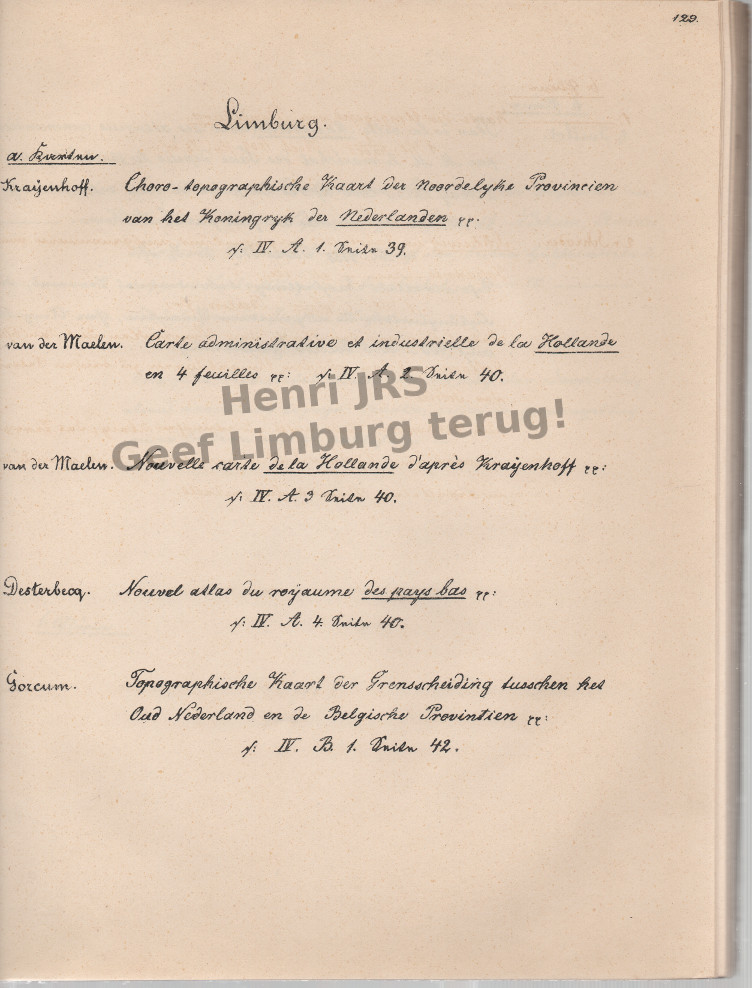 129.
Limburg.
a. Karten.
Kraÿenhoff. Choro-topographische Kaart der noordelyke Provincien
van het Koningryk der Nederlanden pp.
s: IV. A. 1. Seite 39.
van der Maelen. Carte administrative et industrielle de la Hollande
en 4 feuilles pp: s: IV. A. 2 Seite 40.
Henri JRS
Geef Limburg terug!
van der Maelen. Nouvelle carte de la Hollande d'après Kraÿenhoff pp:
s: IV. A. 3 Seite 40.
Desterbecq. Nouvel atlas du roÿaume des pays bas pp:
s: IV. A. 4. Seite 40.
Gorcum. Topographische Kaart der Grensscheiding tusschen het
Oud Nederland en de Belgische Provintien pp:
s: IV. B. 1. Seite 42.